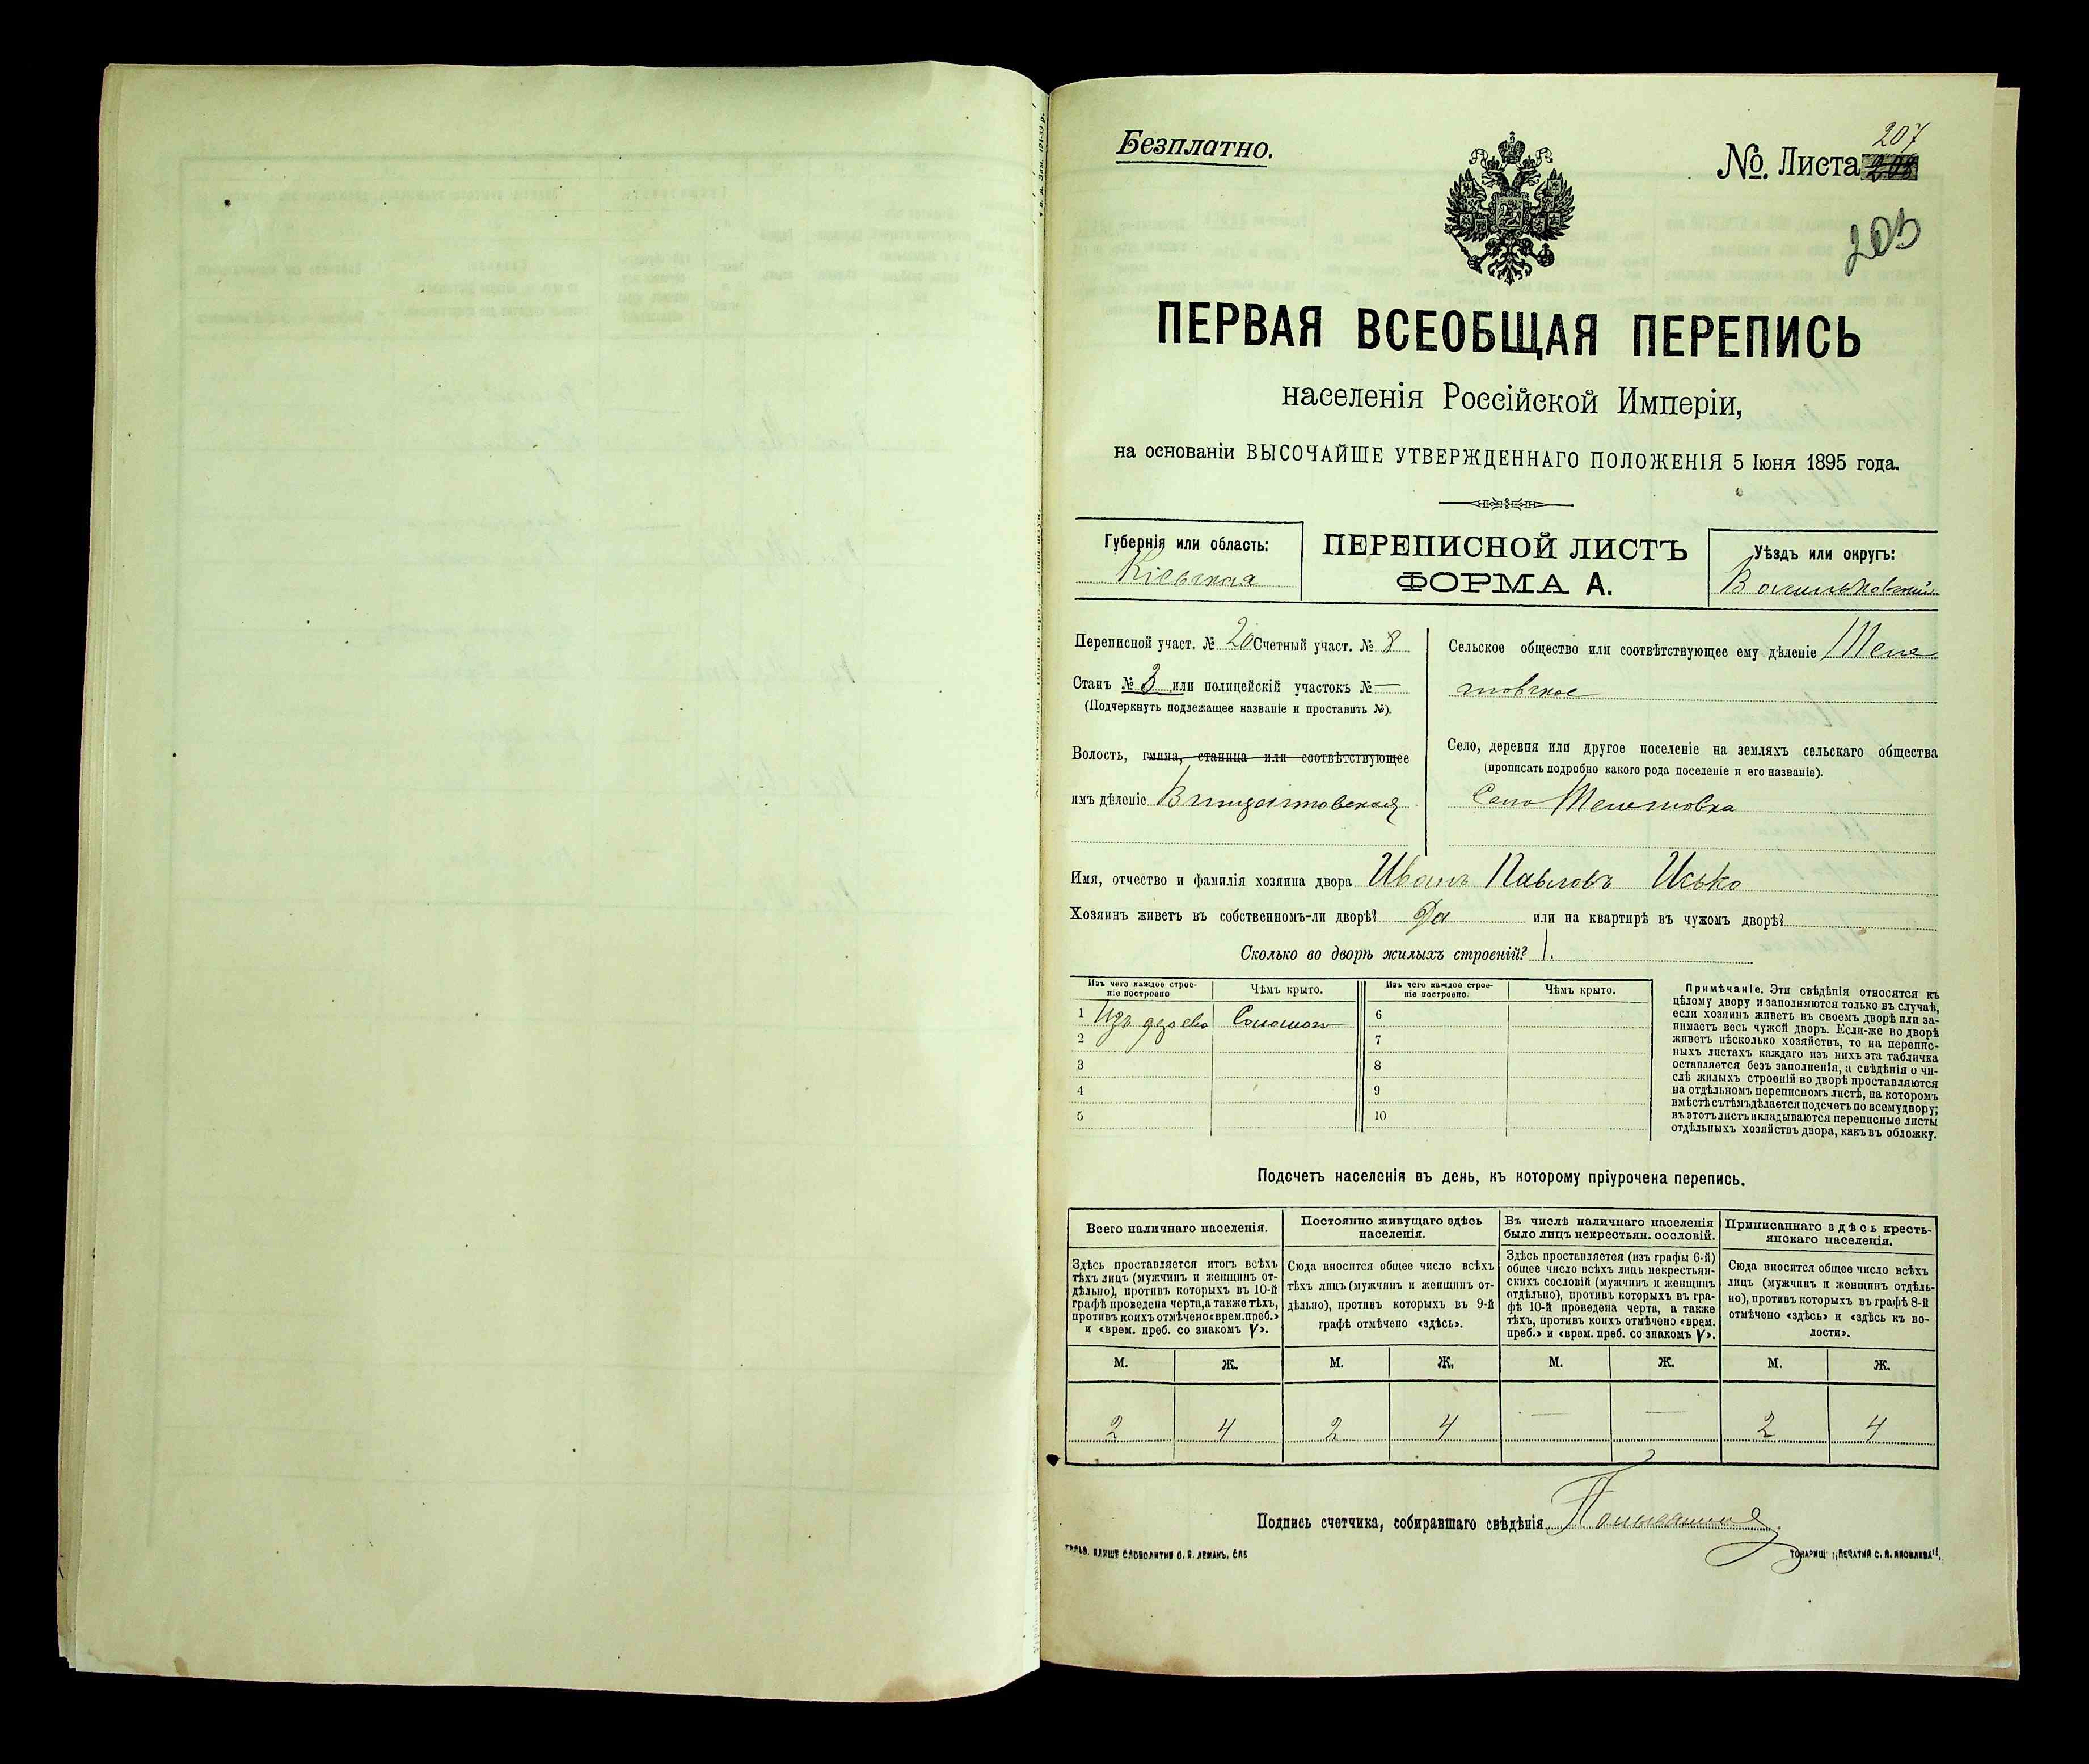 Безплатно.
№. Листа 207
203
ПЕРВАЯ ВСЕОБЩАЯ ПЕРЕПИСЬ
населенія Россійской Имперіи,
на основаніи ВЫСОЧАЙШЕ УТВЕРЖДЕННАГО ПОЛОЖЕНІЯ 5 Іюня 1895 года.
Губернія или область:
Кіевская
ПЕРЕПИСНОЙ ЛИСТЪ
ФОРМА А.
Уѣздъ или округъ:
Васильковскій
Переписной участ. № 20 Счетный участ. № 8
Станъ № 3 или полицейскій участокъ № —
(Подчеркнуть подлежащее названіе и проставить №).
Волость, гмина, станица или соотвѣтствующее
имъ дѣленіе
Сельское общество или соотвѣтствующее ему дѣленіе
Село, деревня или другое поселеніе на земляхъ сельскаго общества
(прописать подробно какого рода поселеніе и его названіе).
Село
Имя, отчество и фамилія хозяина двора Иванъ Павловъ Исько
Хозяинъ живетъ въ собственномъ-ли дворѣ? Да или на квартирѣ въ чужомъ дворѣ?
Сколько во дворѣ жилыхъ строеній? 1.
Изъ чего каждое строе-
ніе построено
Чѣмъ крыто.
Изъ чего каждое строе-
ніе построено.
Чѣмъ крыто.
1 Изъ дерева Соломою 6
2 7
3 8
4 9
5 10
Примѣчаніе. Эти свѣдѣнія относятся къ
цѣлому двору и заполняются только въ случаѣ,
если хозяинъ живетъ въ своемъ дворѣ или за-
нимаетъ весь чужой дворъ. Если-же во дворѣ
живетъ нѣсколько хозяйствъ, то на перепис-
ныхъ листахъ каждаго изъ нихъ эта табличка
оставляется безъ заполненія, а свѣдѣнія о чи-
слѣ жилыхъ строеній во дворѣ проставляются
на отдѣльномъ переписномъ листѣ, на которомъ
вмѣстѣ съ тѣмъ дѣлается подсчетъ по всему двору;
въ этотъ листъ вкладываются переписные листы
отдѣльныхъ хозяйствъ двора, какъ въ обложку.
Подсчетъ населенія въ день, къ которому пріурочена перепись.
Всего наличнаго населенія.
Здѣсь проставляется итогъ всѣхъ
тѣхъ лицъ (мужчинъ и женщинъ от-
дѣльно), противъ которыхъ въ 10-й
графѣ проведена черта, а также тѣхъ,
противъ коихъ отмѣчено «врем. преб.»
и «врем. преб. со знакомъ V».
Постоянно живущаго здѣсь
населенія.
Сюда вносится общее число всѣхъ
тѣхъ лицъ (мужчинъ и женщинъ от-
дѣльно), противъ которыхъ въ 9-й
графѣ отмѣчено «здѣсь».
Въ числѣ наличнаго населенія
было лицъ некрестьян. сословій.
Здѣсь проставляется (изъ графы 6-й)
общее число всѣхъ лицъ некрестьян-
скихъ сословій (мужчинъ и женщинъ
отдѣльно), противъ которыхъ въ гра-
фѣ 10-й проведена черта, а также
тѣхъ, противъ коихъ отмѣчено «врем.
преб.» и «врем. преб. со знакомъ V».
Приписаннаго здѣсь кресть-
янскаго населенія.
Сюда вносится общее число всѣхъ
лицъ (мужчинъ и женщинъ отдѣль-
но), противъ которыхъ въ графѣ 8-й
отмѣчено «здѣсь» и «здѣсь къ во-
лости».
М. Ж. М. Ж. М. Ж. М. Ж.
2 4 2 4 — — 2 4
Подпись счетчика, собиравшаго свѣдѣнія
СЛОВОЛИТНЯ О. И. ЛЕМАНЪ, СПБ
ТОВАРИЩ. „ПЕЧАТНЯ С. П. ЯКОВЛЕВА“.